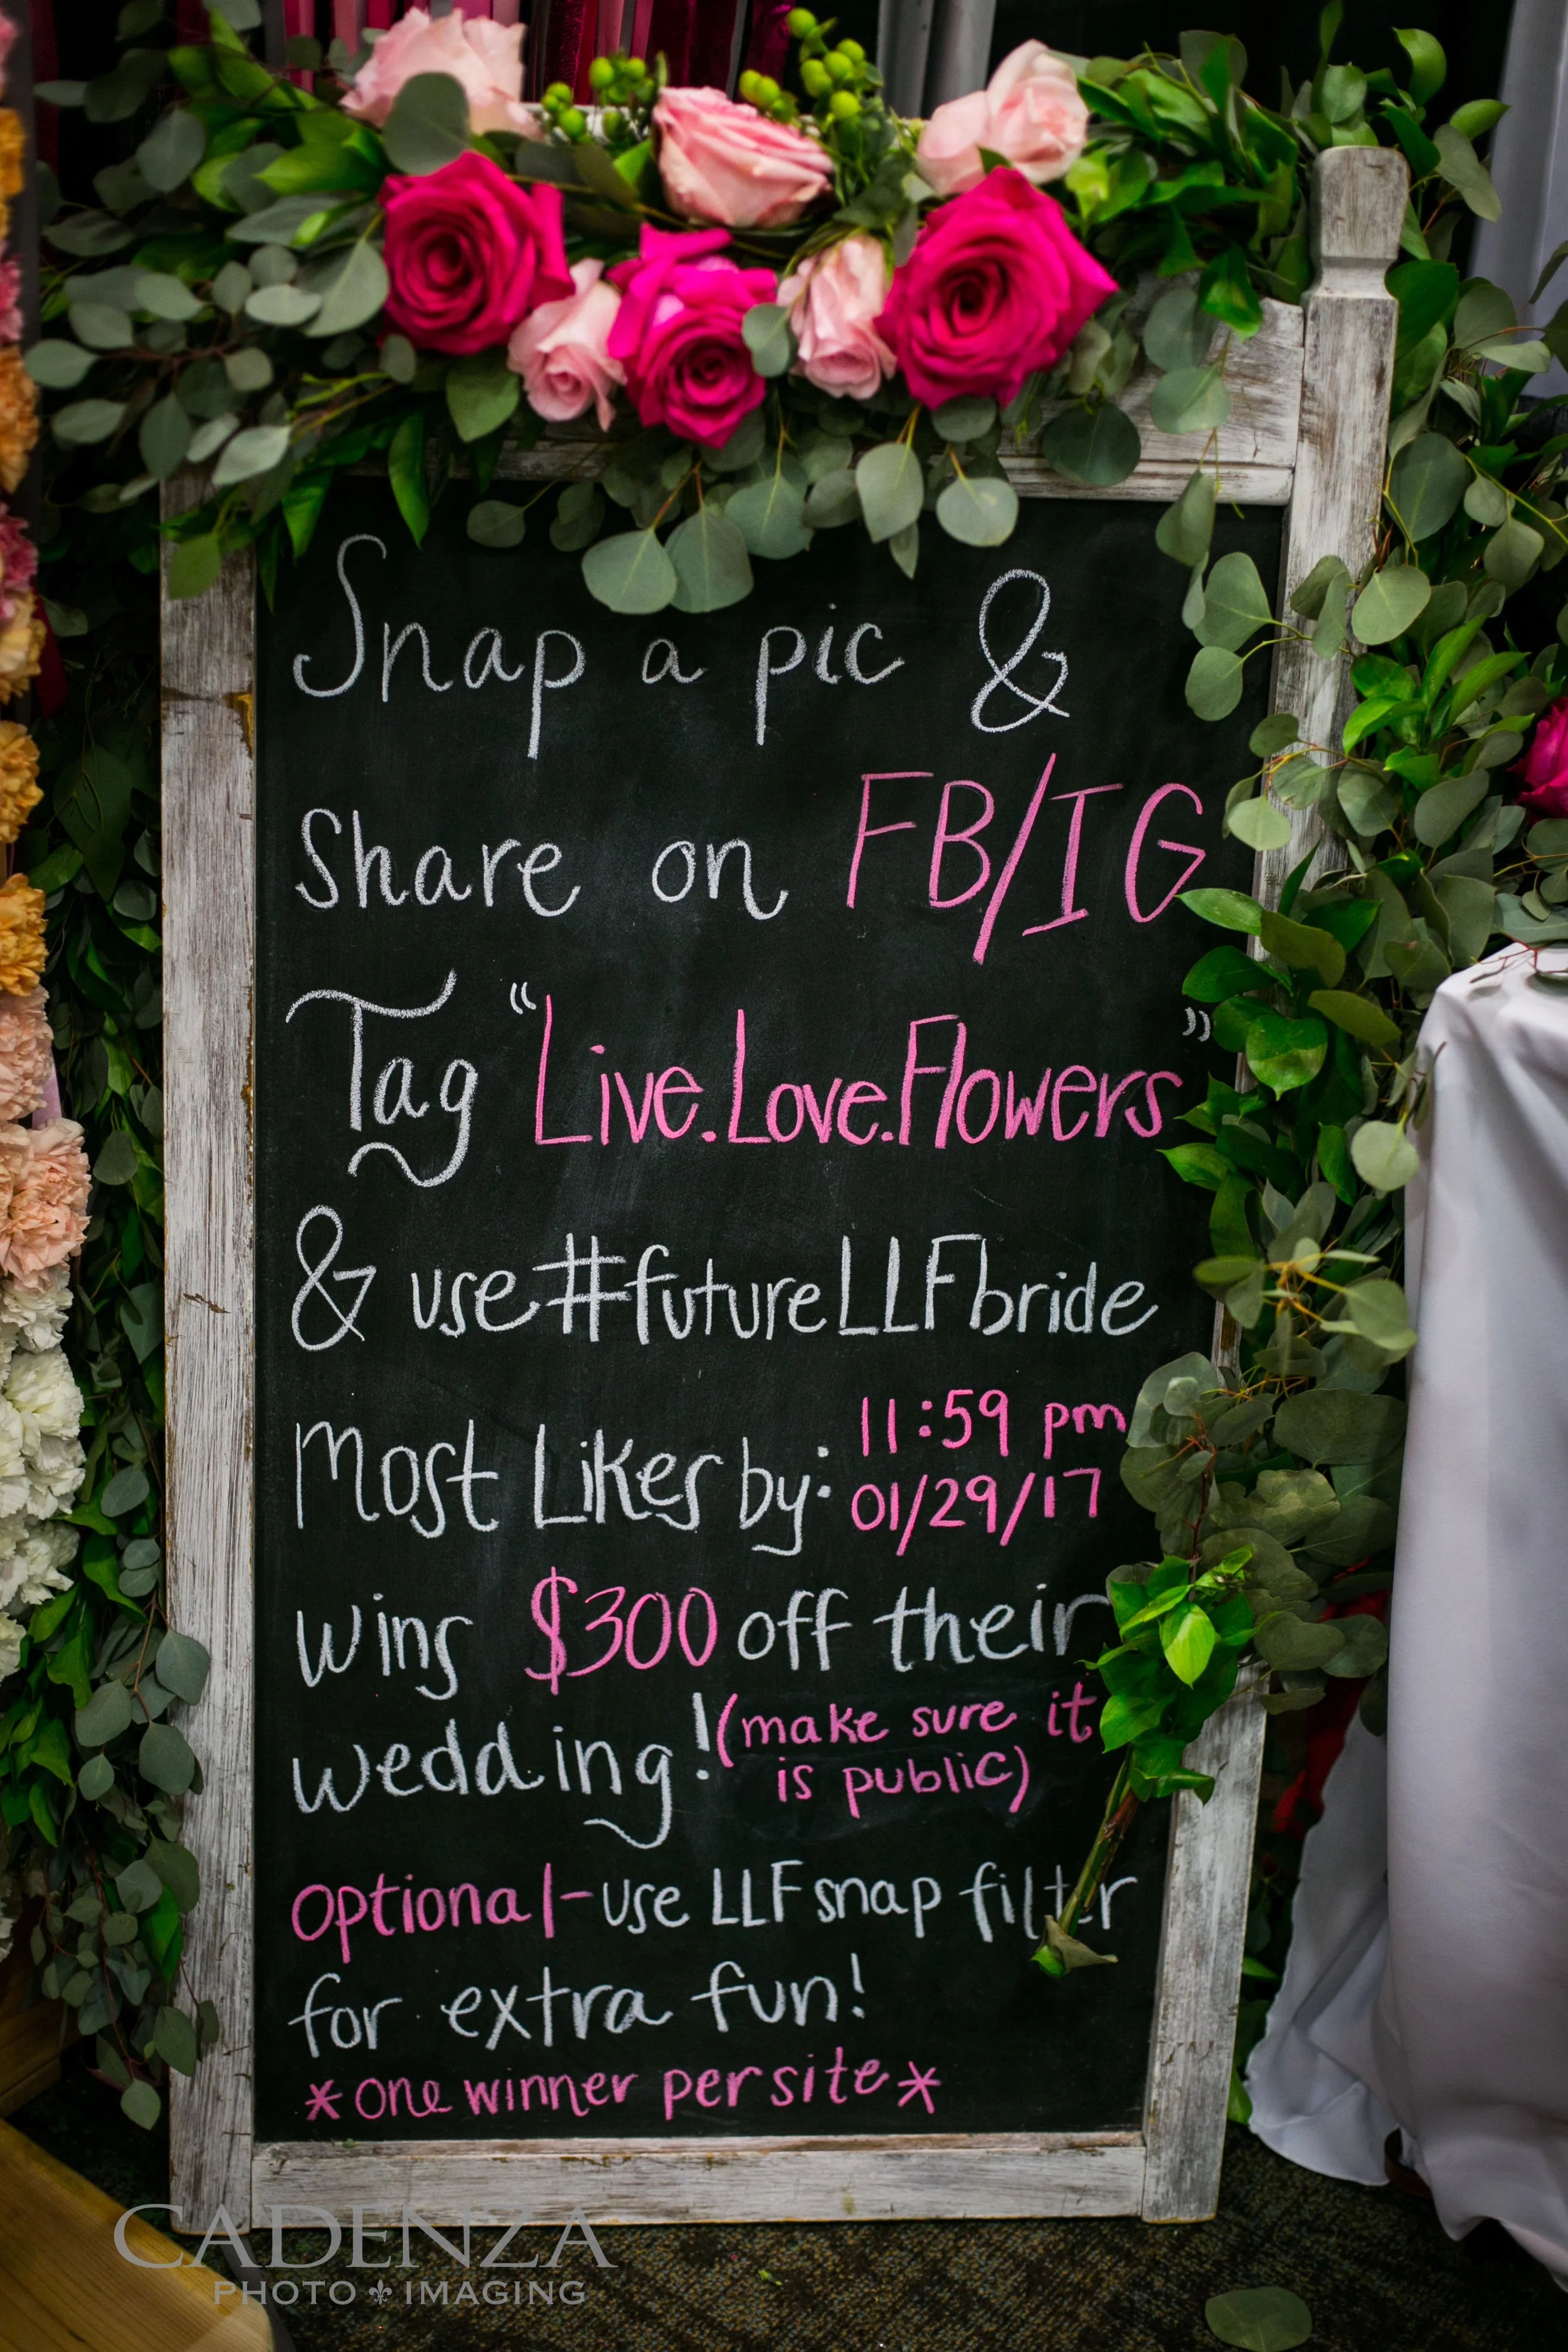 Snap a pic &
Share on FB/IG
Tag "Live.Love.Flowers"
& use #futureLLFbride
Most Likes by: 11:59 pm
01/29/17
wins $300 off their
wedding! (make sure it
is public)
optional-use LLF snap filter
for extra fun!
*one winner per site*
CADENZA
PHOTO IMAGING